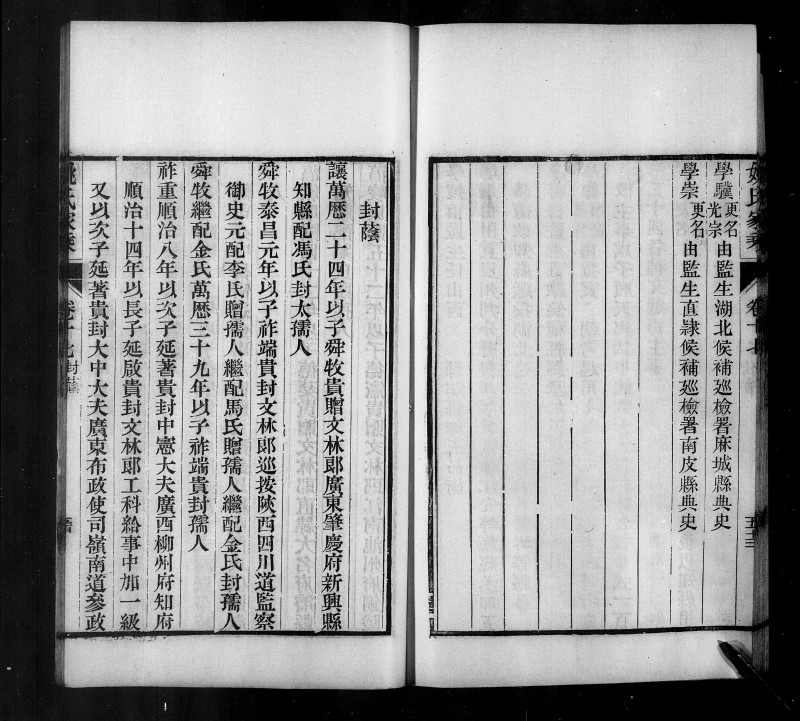 姚氏家乘
卷十七
五十三
學驥更名光宗由監生湖北候補廵檢署麻城縣典史
學崇更名由監生直隷候補廵檢署南皮縣典史
封蔭
讓萬曆二十四年以子舜牧貴贈文林郎廣東肇慶府新興縣
知縣配馮氏封太孺人
舜牧泰昌元年以子祚端貴封文林郎巡按陝西四川道監察
御史元配李氏贈孺人繼配馬氏贈孺人繼配金氏封孺人
舜牧繼配金氏萬曆三十九年以子祚端貴封孺人
祚重順治八年以次子延著貴封中憲大夫廣西柳州府知府
順治十四年以長子延啟貴封文林郎工科給事中加一級
又以次子延著貴封大中大夫廣東布政使司嶺南道參政
姚氏家乘
卷十七封蔭